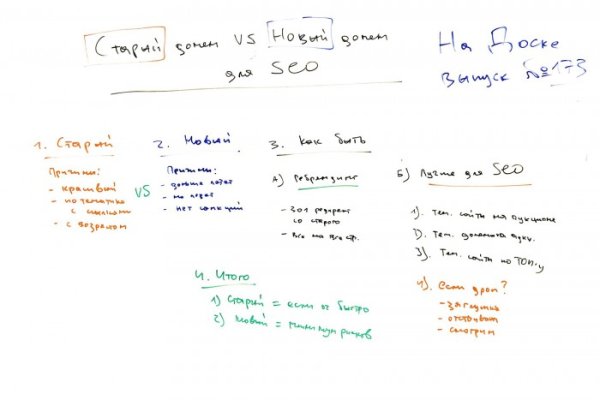 Старый домен VS Новый домен
для SEO
На Доске
выпуск №173
1. Старый
Причины:
- красивый
- по тематике
с ссылками
- с возрастом
VS
2. Новый
Причины:
- дольше
- не
- нет санкций
3. Как быть
А) Ребрендинг
- 301 редирект
со старого
- Все на все стр.
Б) Лучше для SEO
1). Тем. сайты на аукционе
2). Тем. домены аукц.
3). Тем. сайты по ТОП-у
4). Если дроп?
- заглушка
- отстойник
- смотрим
4. Итого
1) Старый = если оч быстро
2) Новый = минимум рисков